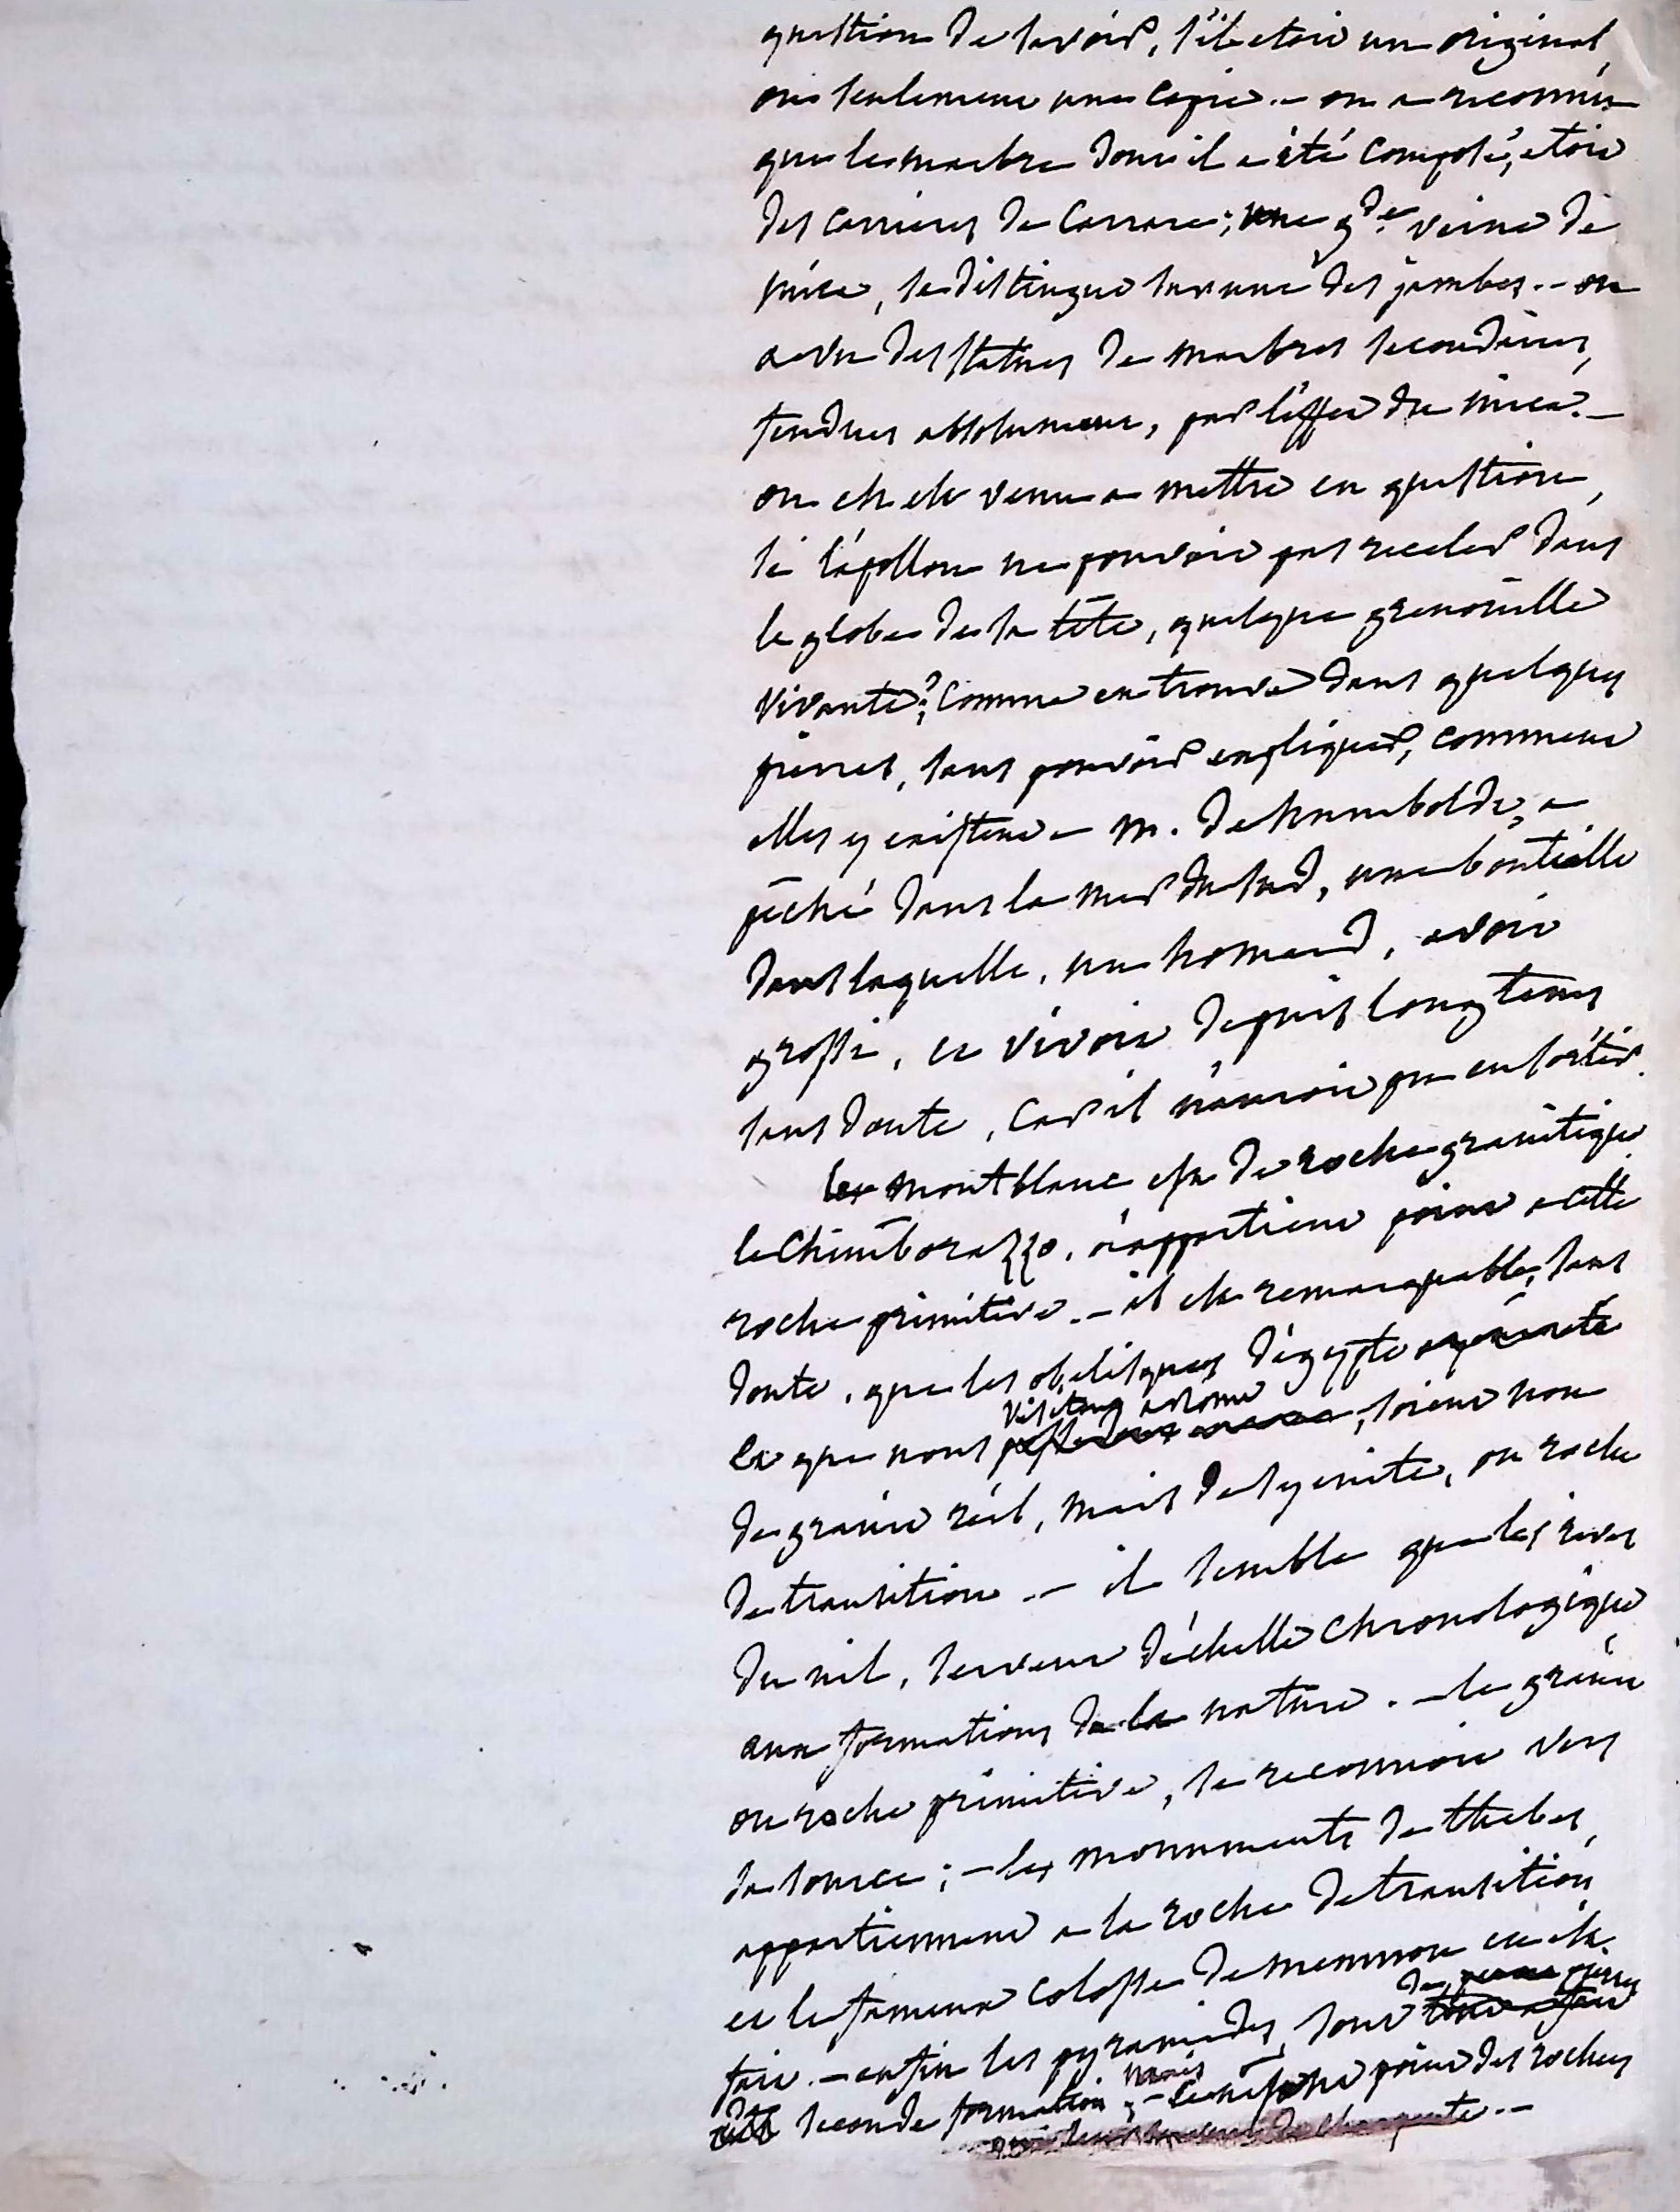 question de savoir, s'il etoit un original,
ou seulement une copie. - on a reconnu
que le marbre dont il a été composé, etoit
des carrieres de Carrare; une gde. veine de
mica, se distingue sur une des jambes. - on
a vu des statues de marbres secondaires,
fendues absolument, par l'effet du mica. -
on en est venu a mettre en question,
si l'apollon ne pouvoit pas receler dans
le globe de sa tête, quelque grenouille
vivante? comme on en trouve dans quelques
pierres, sans pouvoir expliquer, comment
elles y existent - M. de humboldt, a
pêché dans la mer du sud, une bouteille
dans laquelle, un homard, avoit
grossi, et vivoit depuis longtems
sans doute, car il n'auroit pu en sortir.
le mont blanc est de roche granitique.
le Chimborazzo, n'appartient point a cette
roche primitive. - il est remarquable, sans
doute, que les obelisques d'égypte
visitons a rome
et que nous, soient non
de granit réel, mais de syenite, ou roche
de transition. - il semble que les rives
du nil, servent d'échelle chronologique
aux formations de la nature. - le granit
ou roche primitive, se reconnoit vers
sa source; - les monuments de thebes,
appartiennent a la roche de transition,
et le fameux colosse de memnon en est
de pierres
fait. - enfin les pyramides, sont
de seconde formation, mais ce ne sont point des roches